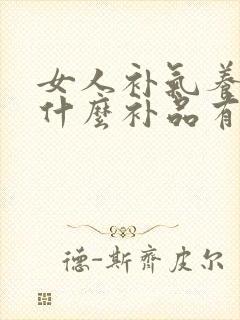 女人补氣養
什麼补品有
德-斯齊皮尔